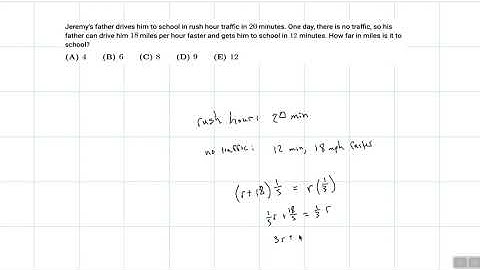 Jeremy's father drives him to school in rush hour traffic in 20 minutes. One day, there is no traffic, so his
father can drive him 18 miles per hour faster and gets him to school in 12 minutes. How far in miles is it to
school?
(A) 4 (B) 6 (C) 8 (D) 9 (E) 12
rush hour: 20 min
no traffic: 12 min, 18 mph faster
(r+18) 1/5 = r (1/3)
1/5 r + 18/5 = 1/3 r
3r +